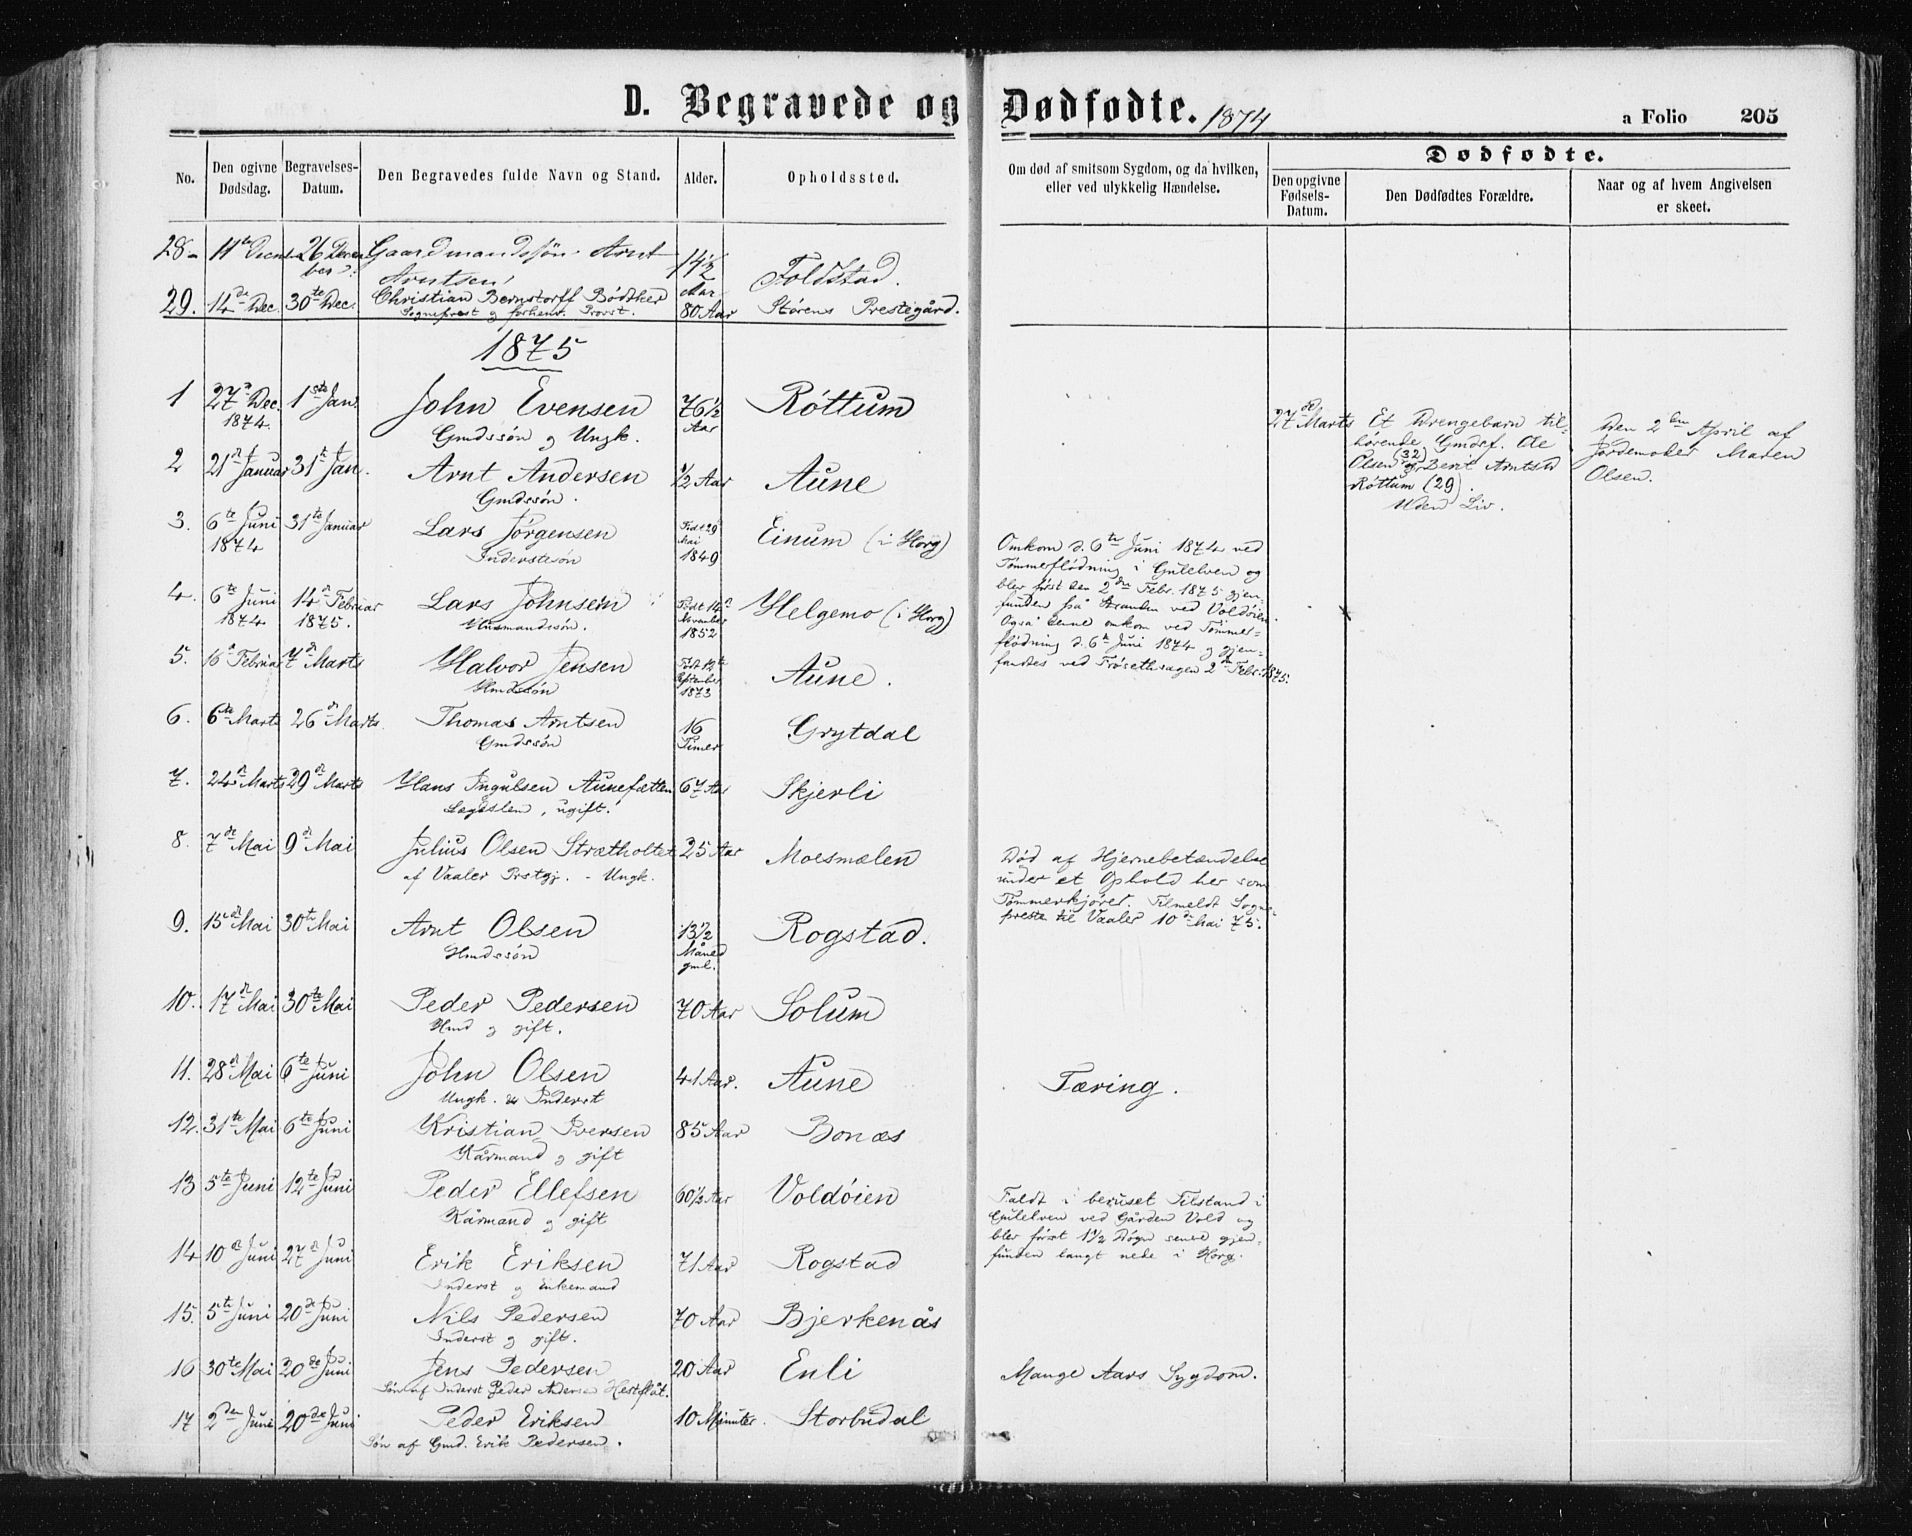 D. Begravede og Dødfødte. 1874
a Folio 205
No.
Den ogivne Dødsdag.
Begravelses-Datum.
Den Begravedes fulde Navn og Stand.
Alder.
Opholdssted.
Om død af smitsom Sygdom, og da hvilken, eller ved ulykkelig Hændelse.
Dødfødte.
Den opgivne Fødsels-Datum.
Den Dødfødtes Forældre.
Naar og af hvem Angivelsen er skeet.
28 11te Decem 26 Decem Gaardmandssøn Arnt 14½ Foldstad.
ber Arntsen Aar
29. 14de Dec. 30te Dec. Christian Bernstorff Bødtker 80 Aar Størens Prestegård.
Sogneprest og forhenv. Provst.
1875
1 27d Dec. 1ste Jan. John Evensen 76½ Røttum
1874. Gmdssøn og Ungk. Aar
27de Marts Et Drengebarn til-
hørende Gmdsf. Ole
Olsen (32) og Berit Arntsd
Røttum (29).
Uden Liv.
Den 2den April af
Jordemoder Maren
Olsen.
2 21d Januar 31t Jan. Arnt Andersen ½ Aar Aune
Gmdssøn.
3. 6te Juni 31te Januar Lars Jørgensen Født 29 Einum (i Horg)
1874 Inderstesøn Mai 1849
Omkom d. 6te Juni 1874 ved
Tømmerflødning i Gulelven og
blev først den 2den Febr. 1875 gjen-
funden på Stranden ved Voldøien.
4. 6te Juni 14d Februar Lars Johnsen Født 14d Helgemo (i Horg)
1874 1875. Husmandssøn. November 1852
Også denne omkom ved Tømmer-
flødning d. 6te Juni 1874 og gjen-
fandtes ved Frøsethsagen 2den Febr. 1875.
5. 16d Februar 7d Marts Halvor Jensen Født 12te Aune.
Hmdssøn September 1873
6. 6te Marts 26d Marts Thomas Arntsen 16 Grytdal
Gmdssøn Timer
7. 24d Marts 29d Marts Hans Ingulsen Aunefætten 67 Aar Skjerli
Lægdslem, ugift.
8. 7de Mai 9d Mai Julius Olsen Strætholtet 25 Aar Moesmælen
af Vaaler Prstgj. - Ungk.
Død af Hjernebetændelse
under et Ophold her som
Tømmerkjører. Tilmeldt Sogne-
preste til Vaaler 10d Mai 75.
9. 15d Mai 30te Mai Arnt Olsen 13½ Rogstad.
Hmdssøn Måned gml.
10. 17d Mai 30te Mai Peder Pedersen 70 Aar Solum
Hmd og gift.
11. 28d Mai 6te Juni John Olsen 41 Aar. Aune Tæring.
Ungk. & Inderst
12. 31te Mai 6te Juni Kristian Iversen 85 Aar Bonæs
Kårmand og gift
13 5te Juni 12te Juni Peder Ellefsen 60½ Aar Voldøien
Kårmand og gift
Faldt i beruset Tilstand i
Gulelven ved Gården Vold og
blev først 1½ Døgn senere gjen-
funden langt nede i Horg.
14 10d Juni 27d Juni Erik Eriksen 71 Aar Rogstad
Inderst og Enkemand
15. 5te Juni 20de Juni Nils Pedersen 70 Aar Bjerkenås
Inderst og gift.
16 30te Mai 20de Juni Jens Pedersen 20 Aar Enli Mange Aars Sygdom.
Søn af Inderst Peder Andersen Hestflåt.
17 2den Juni 20de Juni Peder Eriksen 10 Minuter. Storbudal
Søn af Gmd. Erik Pedersen.